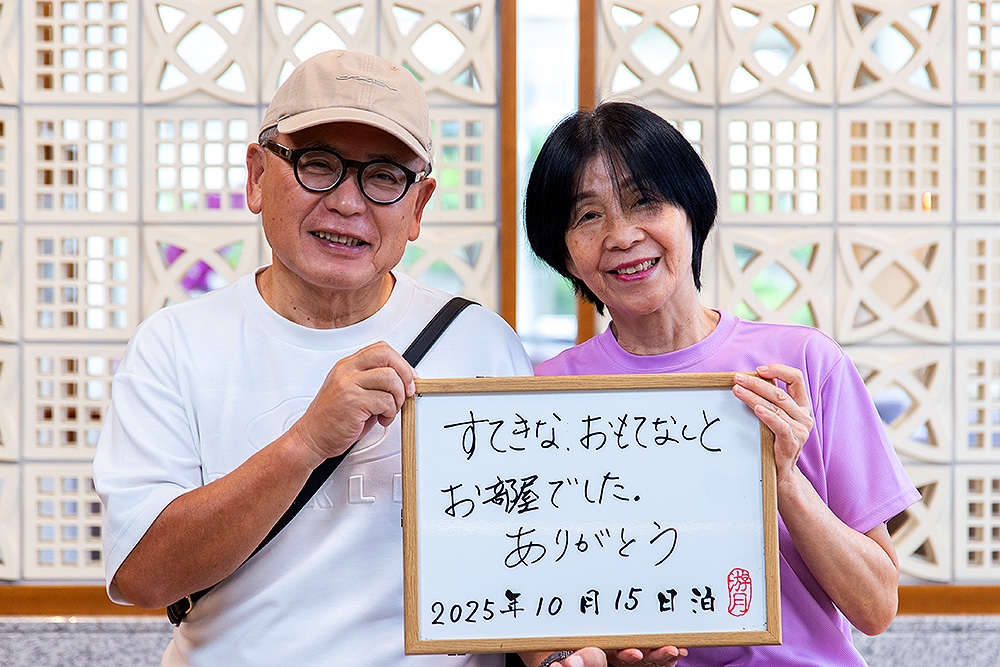 すてきな、おもてなしと
お部屋でした.
ありがとう
2025年10月15日泊
游月